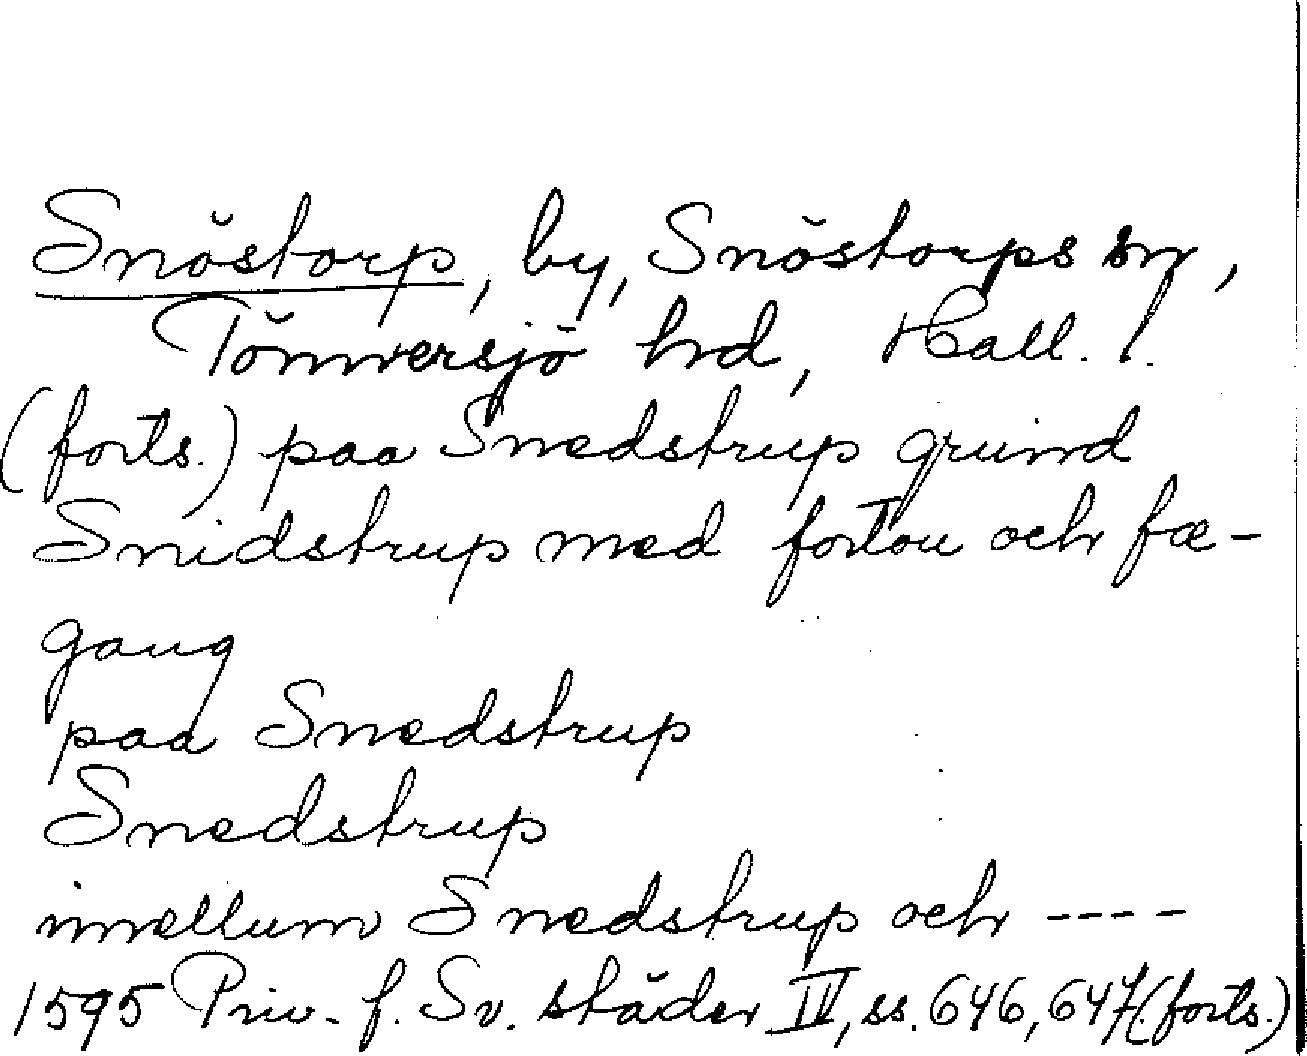 Snöstorp, by, Snöstorps sn,
Tönnersjö hd, Hall. l.
(forts.) paa Snedstrup grund
Snidstrup med fortou och fæ-
gang
paa Snedstrup
Snedstrup
imellum Snedstrup och ----
1595 Priv. f. Sv. städer IV, ss. 646, 647. (forts.)